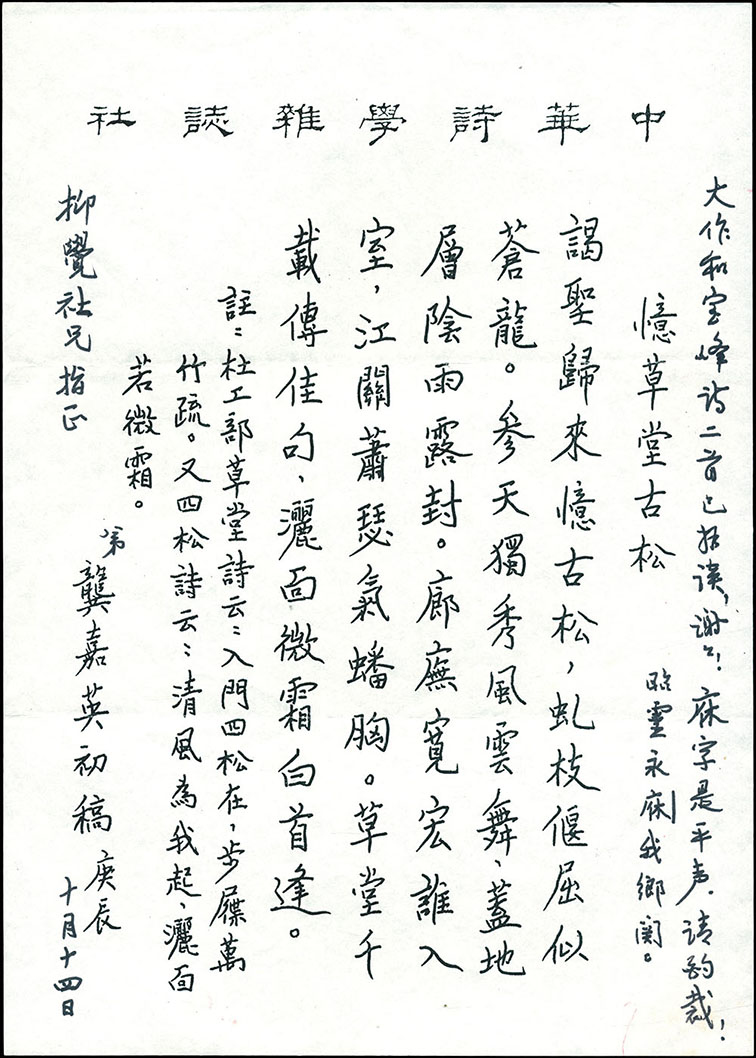 中華詩學雜誌社
大作和宝峰诗二首已拈读,谢々!庥字是平声,请酌裁!
昭靈永庥我鄉関。
憶草堂古松
謁聖歸來憶古松,虬枝偃屈似
蒼龍。參天獨秀風雲舞、蓋地
層陰雨露封。廊廡寬宏誰入
室,江關蕭瑟氣蟠胸。草堂千
載傳佳句、灑面微霜白首逢。
註:杜工部草堂詩云:入門四松在,步屧萬
竹疏。又四松詩云:清風為我起、灑面
若微霜。
抑覺社兄指正
弟龔嘉英初稿庚辰
十月十四日